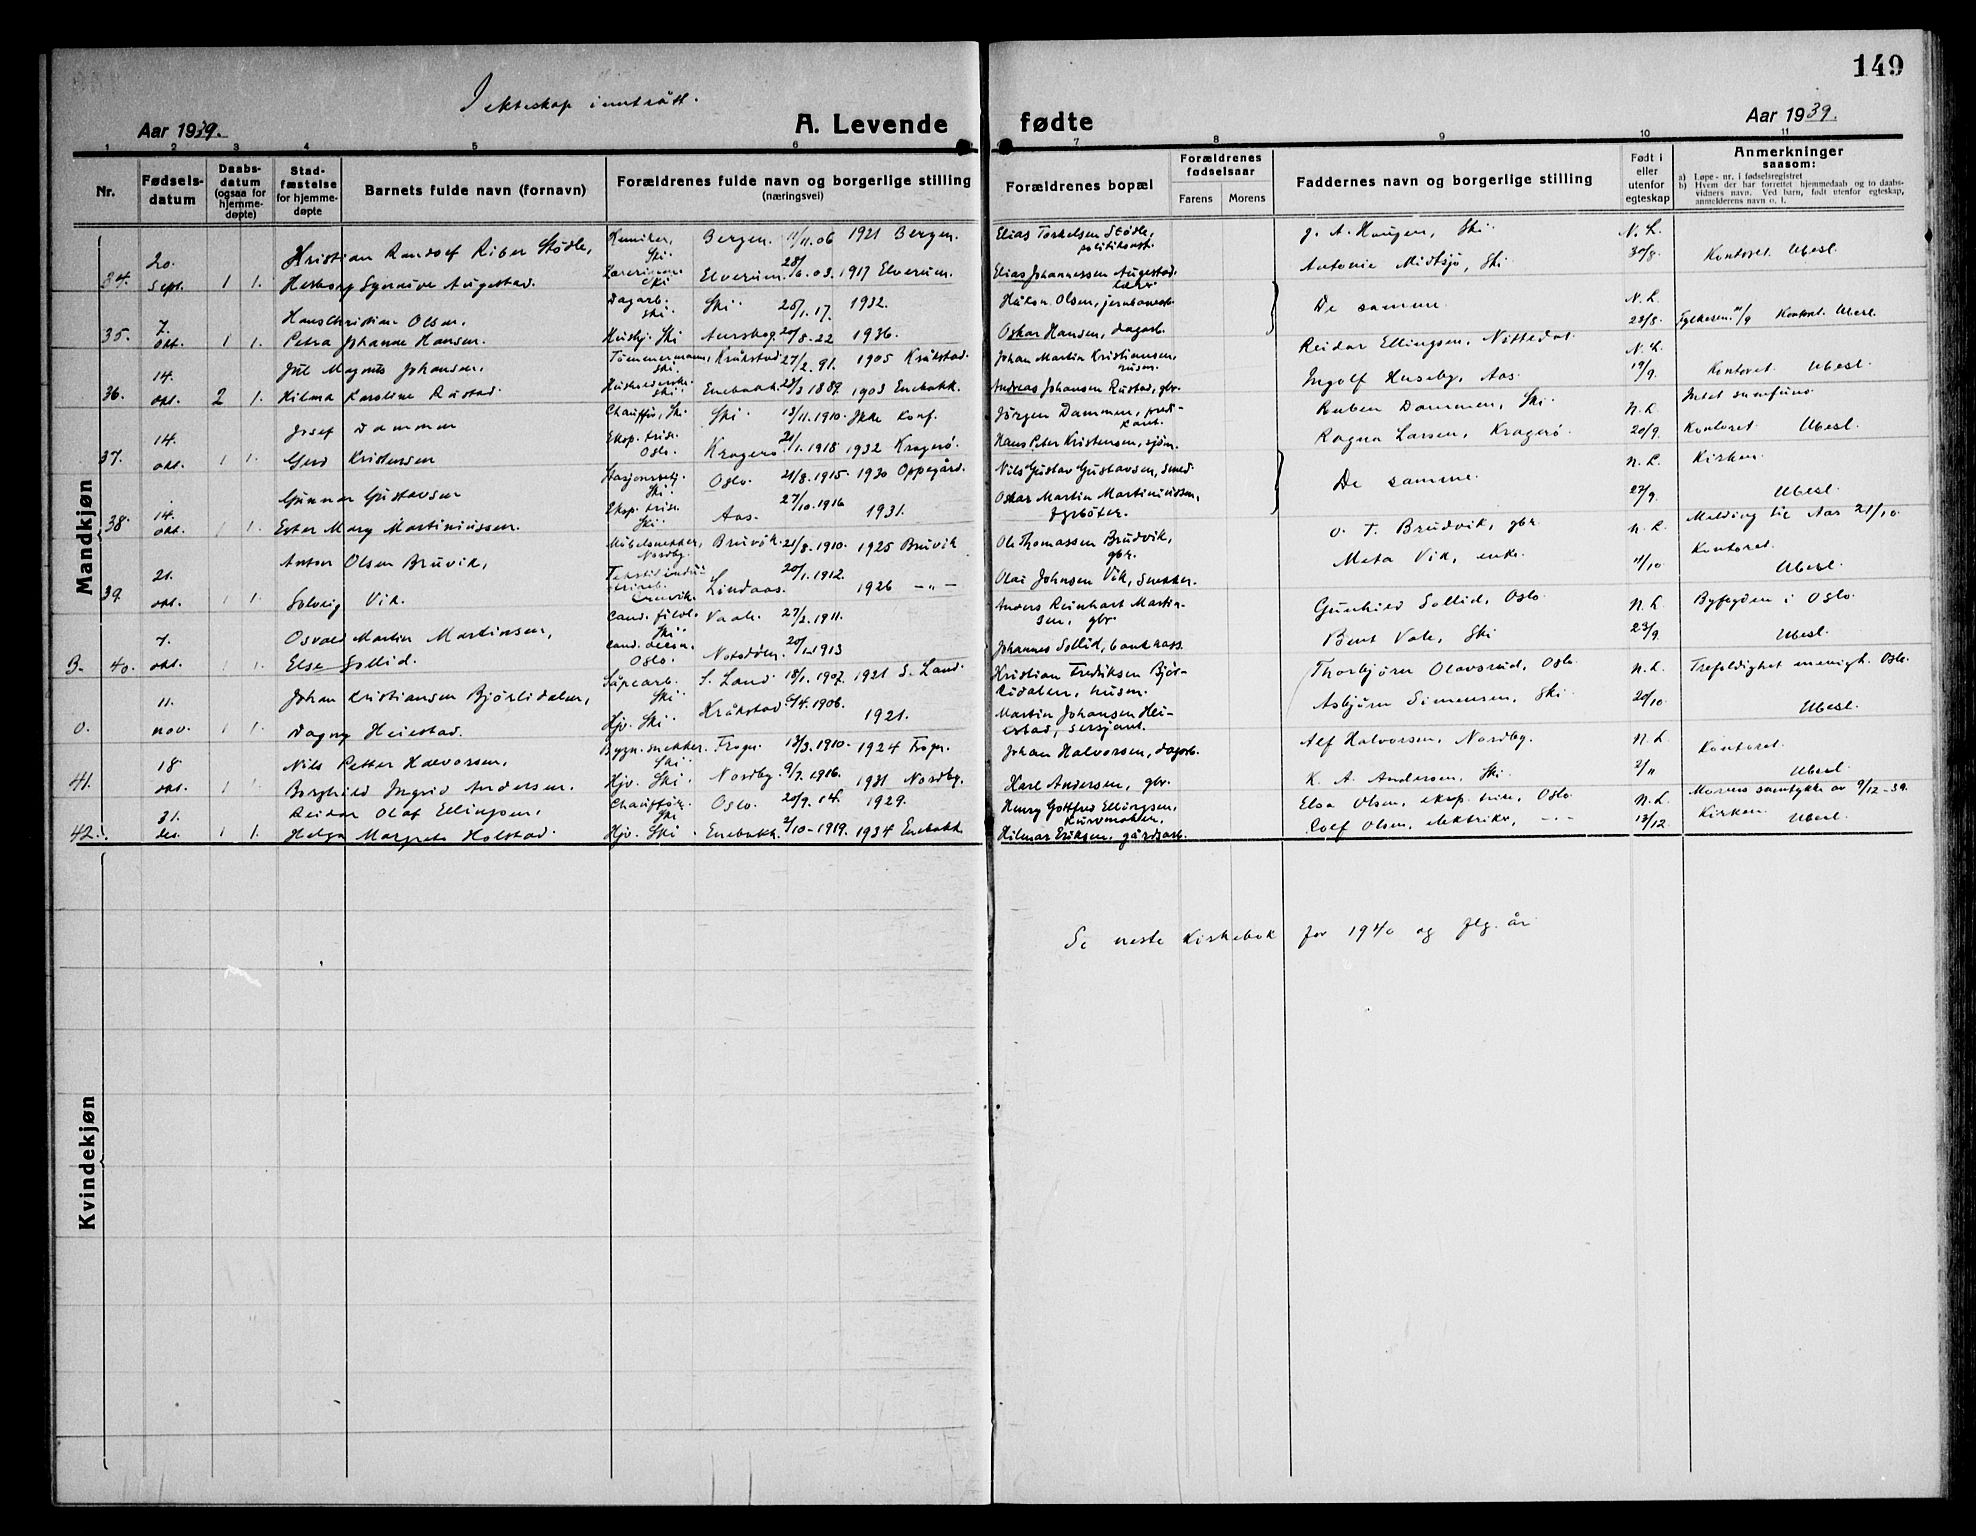 149
I ekteskap inntrått.
Aar 1939.
A. Levende fødte
Aar 1939.
1 2 3 4 5 6 7 8 9 10 11
Nr.
Fødselsdatum
Daabsdatum (ogsaa for hjemmedøpte)
Stadfæstelse for hjemmedøpte
Barnets fulde navn (fornavn)
Forældrenes fulde navn og borgerlige stilling (næringsvei)
Forældrenes bopæl
Forældrenes fødselsaar
Farens Morens
Faddernes navn og borgerlige stilling
Født i eller utenfor egteskap
Anmerkninger saasom:
a) Løpe-nr. i fødselsregistret
b) Hvem der har forrettet hjemmedaab og to daabsvidners navn. Ved barn, født utenfor egteskap, anmelderens navn o. l.
Mandkjøn
Kristian Randolf Riber Stødle, Kemiker, Ski. Bergen. 11/11.06 1921 Bergen. Elias Torkelsen Stødle, politikonst. J. A. Haugen, Ski. N. L.
34. 20. sept. 1 1. Herborg Synnøve Augestad. Lærerinne Ski Elverum. 1917 Elverum. Elias Johannessen Augestad. lærer Antonie Midtsjø, Ski 30/8. Kontoret Ubesl.
Hans Christian Olsen, Dagarb. Ski. Ski 26/1.17. 1932. Håkon Olsen, jernbanearb. De samme. N. L.
35. 7. okt. 1 1. Petra Johanne Hansen. Husbj. Ski Aurskog. 20/8.22 1936. Oskar Hansen, dagarb. 23/8. Kontoret. Ubesl.
Jul Magnus Johansen, Tømmermann, Ski. Kråkstad. 27/2.91. 1905 Kråkstad. Johan Martin Kristiansen, husm. Reidar Ellingsen, Nittedal. N. L.
36. 14. okt. 2 1. Hilma Karoline Rustad. Ski Enebakk. 28/3 1889. 1903 Enebakk. Andreas Johansen Rustad, gbr. Ingolf Huseby, Aas. 19/9. Kontoret. Ubesl.
Josef Dammen Chauffør, Ski Ski 13/11.1910. Ikke konf. Jørgen Dammen, predikant. Ruben Dammen, Ski N. L. Intet samfunn
37. 14. okt. 1 1. Gerd Kristensen Eksp. trise. Oslo. Kragerø 21/1.1918 1932 Kragerø. Hans Peter Kristensen, sjøm. Ragna Larsen, Kragerø. 20/9. Kontoret Ubesl.
Gunnar Gustavsen Stasjonsbetj. Ski. Oslo. 21/8.1915. 1930 Oppegård. Nils Gustav Gustavsen, smed. De samme. N. L. Kirken
38. 14. okt. 1 1. Ester Mary Martiniussen. Eksp. trise. Ski. Aas. 27/10.1916 1931. Oskar Martin Martiniussen, fyrbøter. 27/9. Ubesl.
Anton Olsen Bruvik, Møbelsnekker, Nordby. Bruvik. 21/8.1910. 1925 Bruvik Ole Thomassen Brudvik, gbr. O. T. Brudvik, gbr. N. L. Melding til Aas 21/10.
39. 21. okt. 1 1. Solveig Vik. Lindaas. 20/1.1912. 1926 -„- Olai Johnsen Vik, snekker. Meta Vik, enke. 11/10 Kontoret. Ubesl.
Osvald Martin Martinsen, Cand. filol. Ski. Vaale. 27/2.1911. Anders Reinhart Martinsen, gbr. Gunhild Sollid, Oslo. N. L. Byfogden i Oslo.
B. 40. 7. okt. 1 1. Else Sollid. Oslo. Notodden. 1913 Johannes Sollid, bankkass. Bent Vale, Ski 23/9. Ubesl.
Johan Kristiansen Bjørlidalen, Såpearb. Ski. S. Land 18/1.1907. 1921 S. Land. Kristian Fredriksen Bjørlidalen, husm. Thorbjørn Olavsrud, Oslo. N. L. Trefoldighet menigh. Oslo.
O. 11. nov. 1 1. Dagny Heiestad. Hjv. Ski. Kråkstad 6/4.1906. 1921. Martin Johansen Heiestad, sersjant. Asbjørn Simensen, Ski. 20/10 Ubesl.
Nils Petter Halvorsen, Bygn.snekker. Ski. Frogn. 13/3.1910. 1924 Frogn. Johan Halvorsen, dagarb. Alf Halvorsen, Nordby. N. L. Kontoret.
41. 18 okt. 1 1. Borghild Ingrid Andersen. Hjv. Ski. Nordby. 9/7.1916. 1931 Nordby. Karl Andersen, gbr. K. A. Andersen, Ski. 2/11 Ubesl.
Reidar Olaf Ellingsen, Chauffør. Ski Oslo. 20/9.14. 1929. Henry Gottfred Ellingsen, Kurvmaker. Elsa Olsen, eksp. trise, Oslo N. L. Morens samtykke av 9/12-39.
42. 31. des. 1 1. Helga Margrete Holstad. Hjv. Ski. Enebakk. 2/10-1919. 1934 Enebakk. Hilmar Eriksen, gårdsarb. Rolf Olsen, elektriker, -„- 13/12. Kirken Ubesl.
Se neste kirkebok for 1940 og flg. år
Kvindekjøn